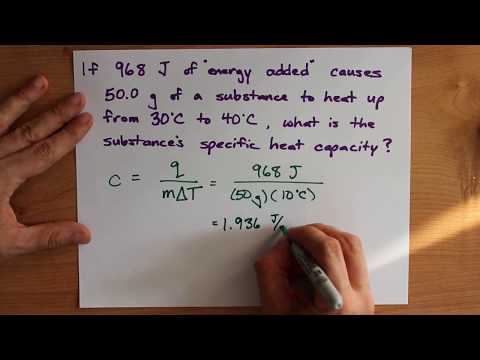 If 968 J of "energy added" causes
50.0 g of a substance to heat up
from 30°C to 40°C, what is the
substance's specific heat capacity?
C = q / mΔT = 968 J / (50g)(10°C)
= 1.936 J/